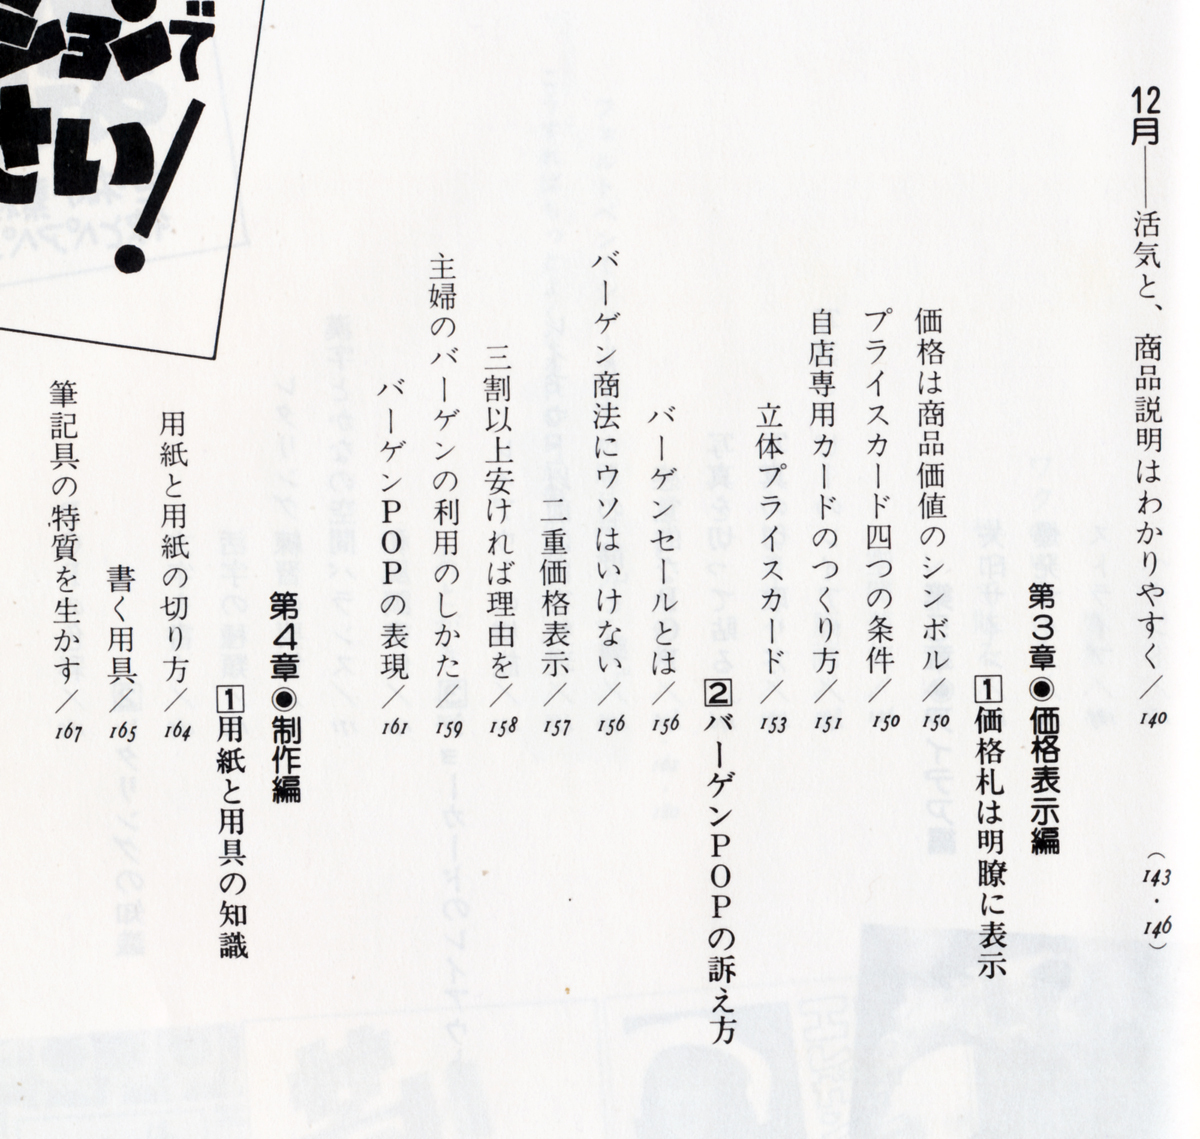 12月――活気と、商品説明はわかりやすく／140
（143・146）
第3章◉価格表示編
1価格札は明瞭に表示
価格は商品価値のシンボル／150
プライスカード四つの条件／150
自店専用カードのつくり方／151
立体プライスカード／153
2バーゲンPOPの訴え方
バーゲンセールとは／156
バーゲン商法にウソはいけない／156
二重価格表示／157
三割以上安ければ理由を／158
主婦のバーゲンの利用のしかた／159
バーゲンPOPの表現／161
第4章◉制作編
1用紙と用具の知識
用紙と用紙の切り方／164
書く用具／165
筆記具の特質を生かす／167
ションで
さい！